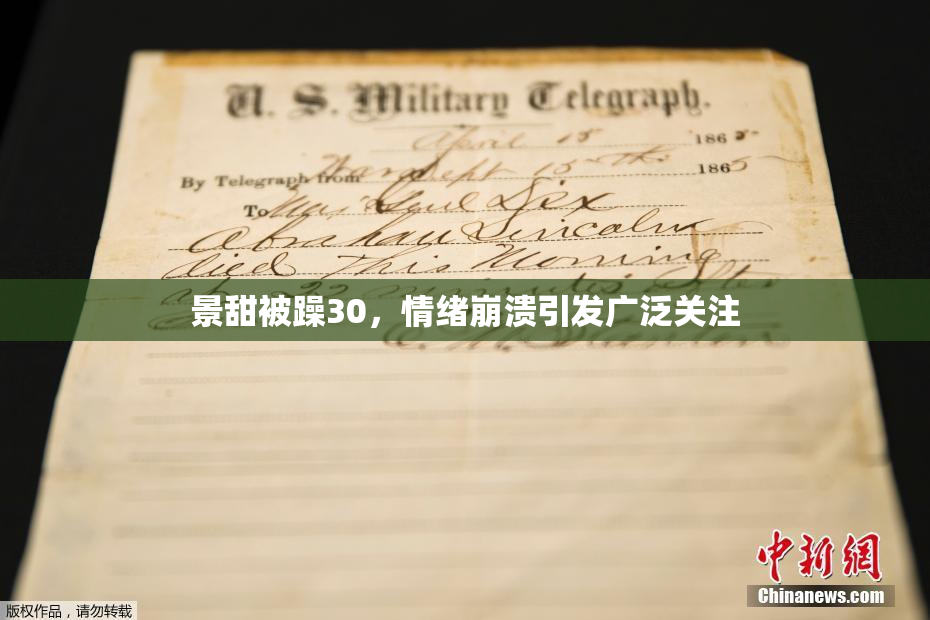 U. S. Military Telegraph.
April 15 1865
By Telegraph from War Dept 15th 1865
To Maj Genl Dix
Abraham Lincoln
died This Morning
at 22 minutes after
景甜被躁30，情绪崩溃引发广泛关注
E. M. Stanton
中新网
Chinanews.com
版权作品，请勿转载